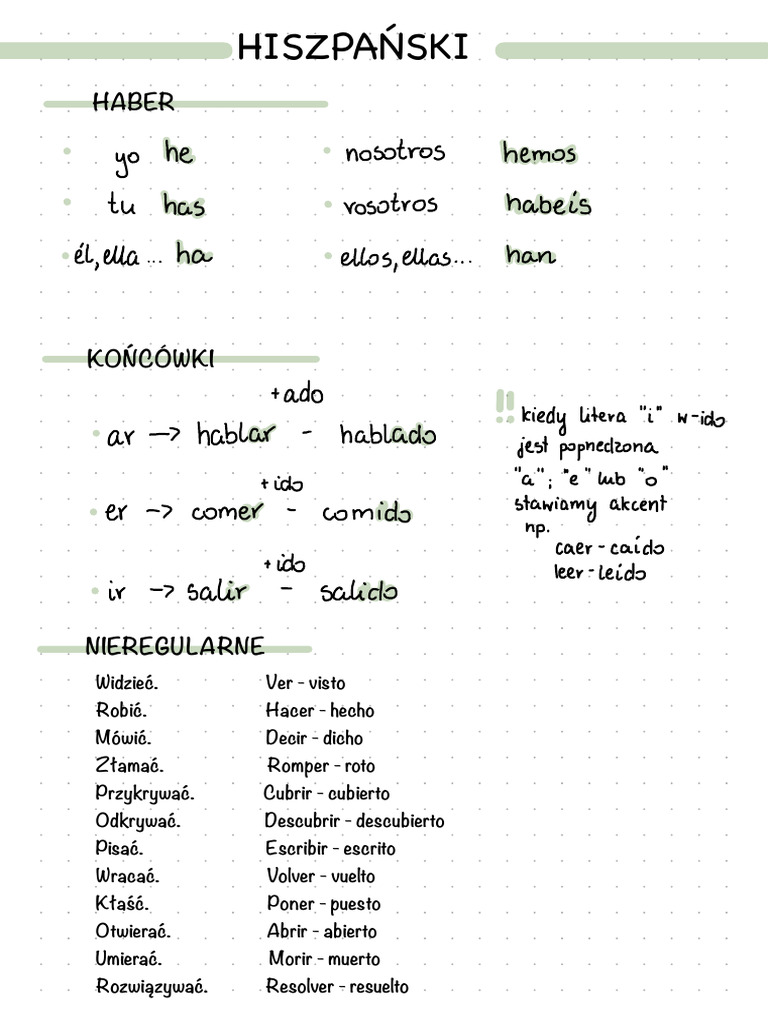 HISZPAŃSKI
HABER
yo he
nosotros hemos
tu has
vosotros habeís
él, ella ... ha
ellos, ellas... han
KOŃCÓWKI
+ado
ar -> hablar - hablado
+ido
er -> comer - comido
+ido
ir -> salir - salido
!! kiedy litera "i" w -ido
jest popnedzona
"a"; "e" lub "o"
stawiamy akcent
np.
caer - caído
leer - leído
NIEREGULARNE
Widzieć. Ver - visto
Robić. Hacer - hecho
Mówić. Decir - dicho
Złamać. Romper - roto
Przykrywać. Cubrir - cubierto
Odkrywać. Descubrir - descubierto
Pisać. Escribir - escrito
Wracać. Volver - vuelto
Kłaść. Poner - puesto
Otwierać. Abrir - abierto
Umierać. Morir - muerto
Rozwiązywać. Resolver - resuelto